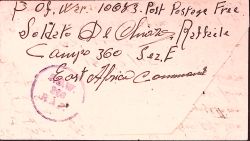 P. Of. War. 10083. Post Postage Free
Soldato De Raffaele
Campo 360 Sez. F
East Africa Command
360